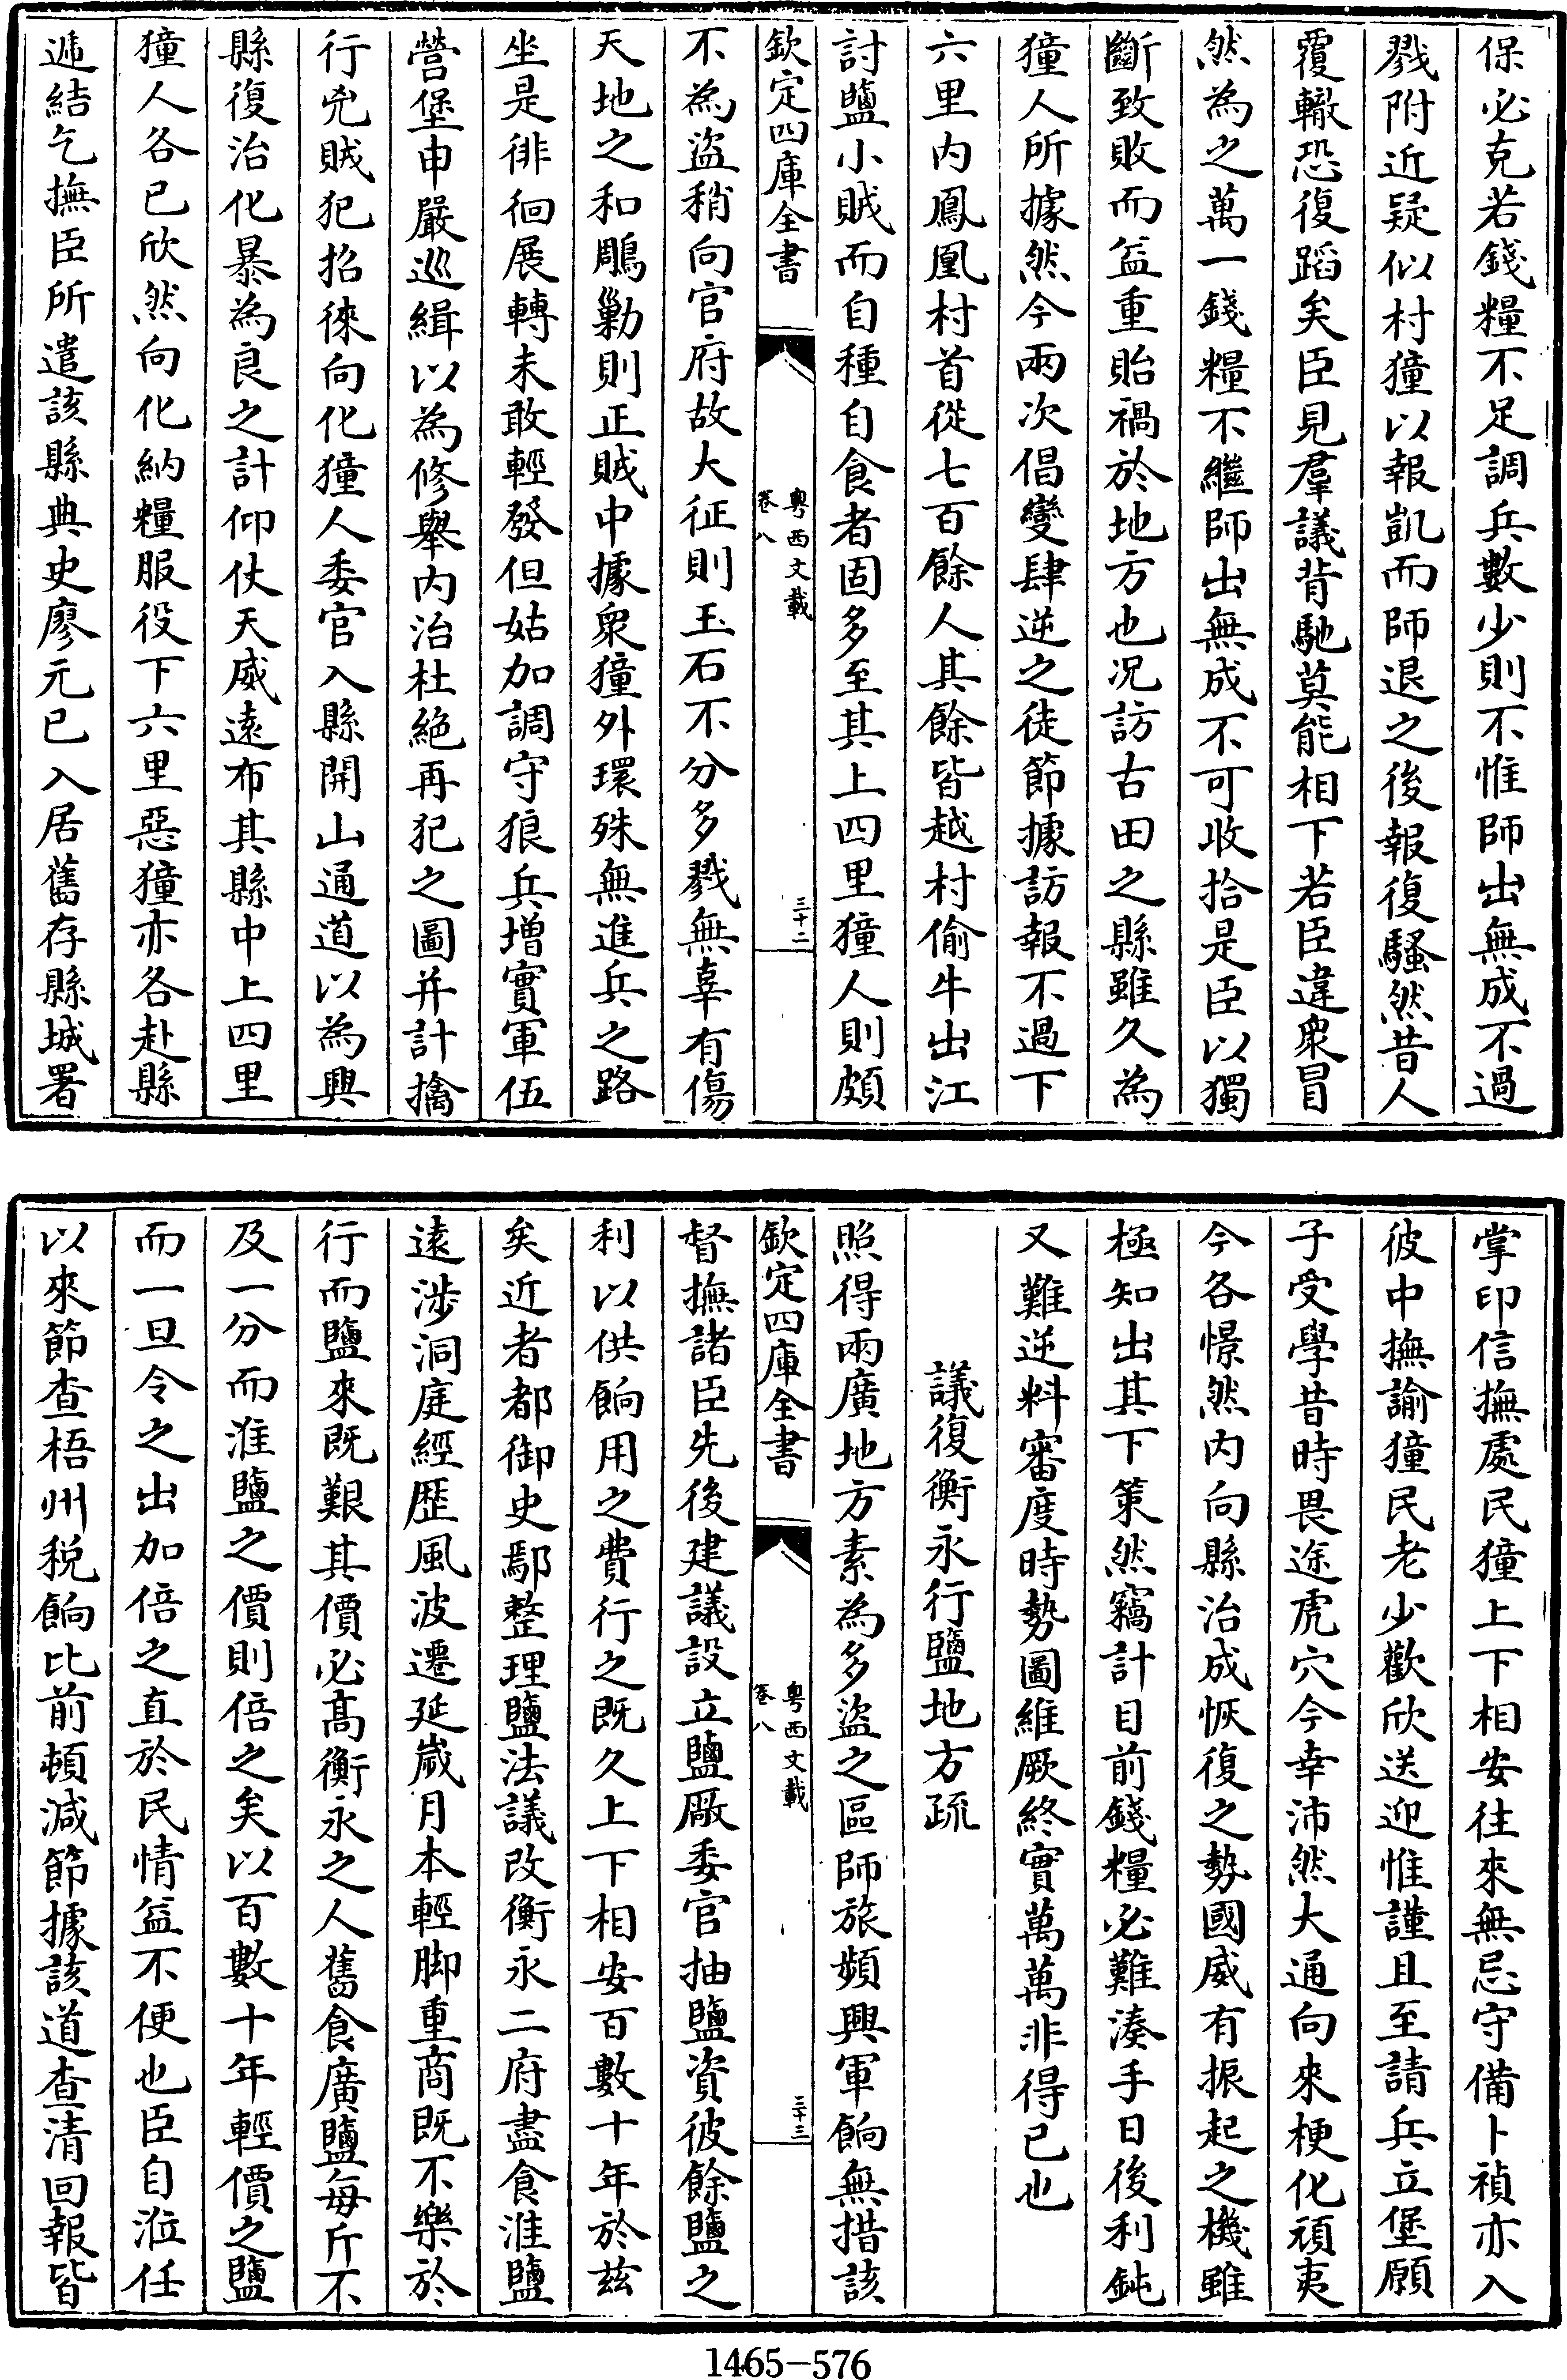 保必克若錢糧不足調兵數少則不惟師出無成不過
戮附近疑似村獞以報凱而師退之後報復騷然昔人
覆轍恐復蹈矣臣見羣議背馳莫能相下若臣違衆冒
然為之萬一錢糧不繼師出無成不可收拾是臣以獨
斷致敗而益重貽禍於地方也况訪古田之縣雖久為
獞人所據然今兩次倡變肆逆之徒節據訪報不過下
六里内鳳凰村首從七百餘人其餘皆越村偷牛出江
討鹽小賊而自種自食者固多至其上四里獞人則頗
欽定四庫全書
粤西文載
卷八
三十二
不為盜稍向官府故大征則玉石不分多戮無辜有傷
天地之和鵰勦則正賊中據衆獞外環殊無進兵之路
坐是徘徊展轉未敢輕發但姑加調守狼兵增實軍伍
營堡申嚴巡緝以為修舉内治杜絶再犯之圖并計擒
行兇賊犯招徠向化獞人委官入縣開山通道以為興
縣復治化暴為良之計仰仗天威遠布其縣中上四里
獞人各已欣然向化納糧服役下六里惡獞亦各赴縣
遞結乞撫臣所遣該縣典史廖元已入居舊存縣城署
掌印信撫處民獞上下相安往來無忌守備卜禎亦入
彼中撫諭獞民老少歡欣送迎惟謹且至請兵立堡願
子受學昔時畏途虎穴今幸沛然大通向來梗化頑夷
今各憬然内向縣治成恢復之勢國威有振起之機雖
極知出其下策然竊計目前錢糧必難湊手日後利鈍
又難逆料審度時勢圖維厥終實萬萬非得已也
議復衡永行鹽地方疏
照得兩廣地方素為多盜之區師旅頻興軍餉無措該
欽定四庫全書
粤西文載
卷八
三十三
督撫諸臣先後建議設立鹽厰委官抽鹽資彼餘鹽之
利以供餉用之費行之既久上下相安百數十年於兹
矣近者都御史鄢整理鹽法議改衡永二府盡食淮鹽
遠涉洞庭經歴風波遷延嵗月本輕脚重商既不樂於
行而鹽來既艱其價必髙衡永之人舊食廣鹽每斤不
及一分而淮鹽之價則倍之矣以百數十年輕價之鹽
而一旦令之出加倍之直於民情益不便也臣自涖任
以來節查梧州税餉比前頓減節據該道查清回報皆
1465-576